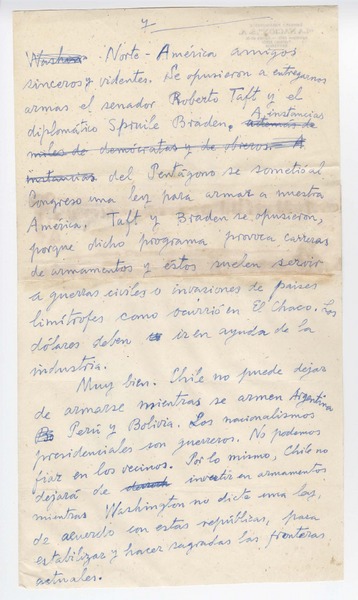 7
Norte-América amigos
sinceros y videntes. Se opusieron a entregarnos
armas el senador Roberto Taft y el
diplomático Spruile Braden. A instancias
además de
miles de demócratas y de obreros. A
instancias del Pentágono se sometió al
Congreso una ley para armar a nuestra
América. Taft y Braden se opusieron,
porque dicho programa provoca carreras
de armamentos y éstos suelen servir
a guerras civiles o invasiones de países
limítrofes como ocurrió en El Chaco. Los
dólares deben ir en ayuda de la
industria.
Muy bien. Chile no puede dejar
de armarse mientras se armen Argentina
Perú y Bolivia. Los nacionalismos
presidenciales son guerreros. No podemos
fiar en los vecinos. Por lo mismo, Chile no
dejará de invertir en armamentos
mientras Washington no dicte una ley,
de acuerdo con estas repúblicas, para
estabilizar y hacer sagradas las fronteras
actuales.